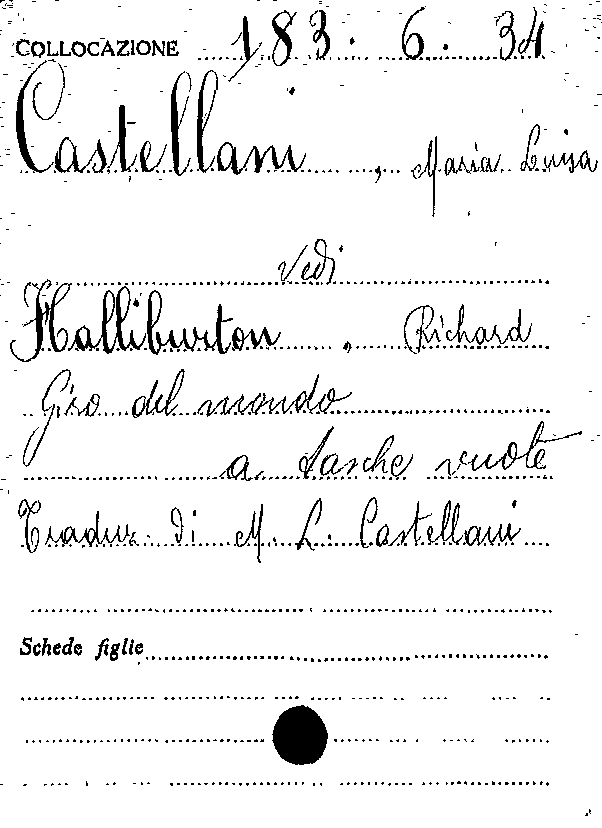 COLLOCAZIONE 183. 6. 34
Castellani, Maria Luisa
Vedi
Halliburton, Richard
Giro del mondo
a tasche vuote
Traduz. di M. L. Castellani
Schede figlie